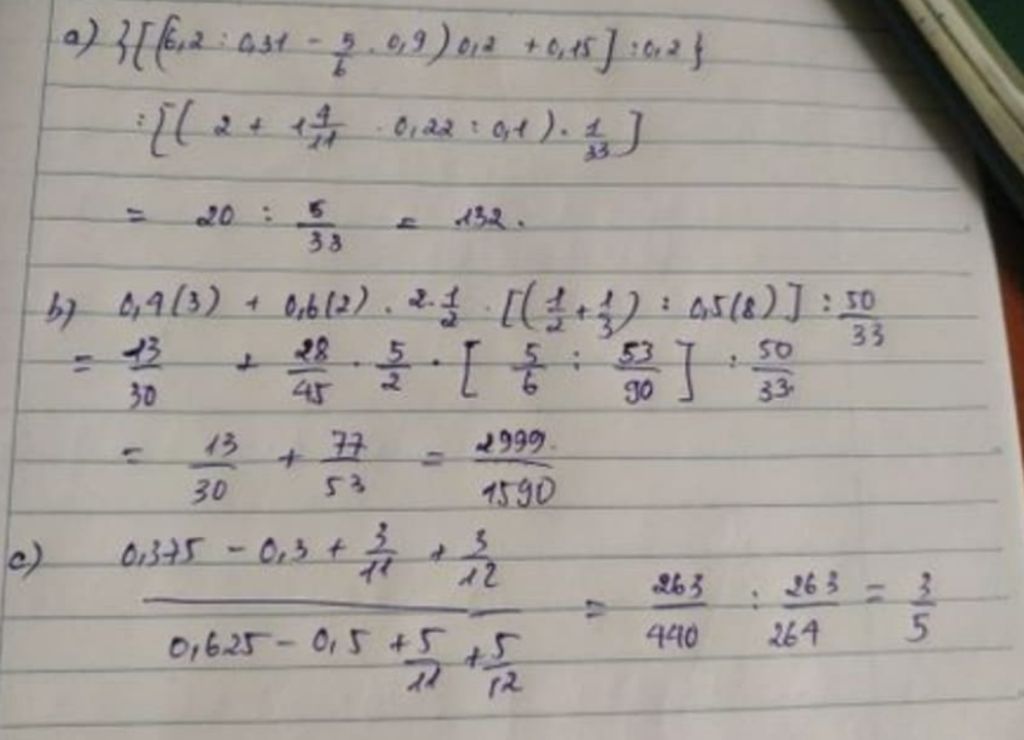 a) {[(6,2 : 0,31 - 5/6 . 0,9) 0,2 + 0,15] : 0,2}
: [( 2 + 1 4/11 . 0,22 : 0,1) . 1/33 ]
= 20 : 5/33 = 132.
b) 0,4(3) + 0,6(2) . 2 . 1/2 . [(1/2 + 1/3) : 0,5(8)] : 50/33
= 13/30 + 28/45 . 5/2 . [ 5/6 : 53/90 ] : 50/33
= 13/30 + 77/53 = 2999/1590
c) (0,375 - 0,3 + 3/11 + 3/12) / (0,625 - 0,5 + 5/11 + 5/12) = 263/440 : 263/264 = 3/5